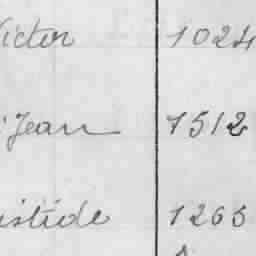 Victor 1024
Jean 1512
istide 1265